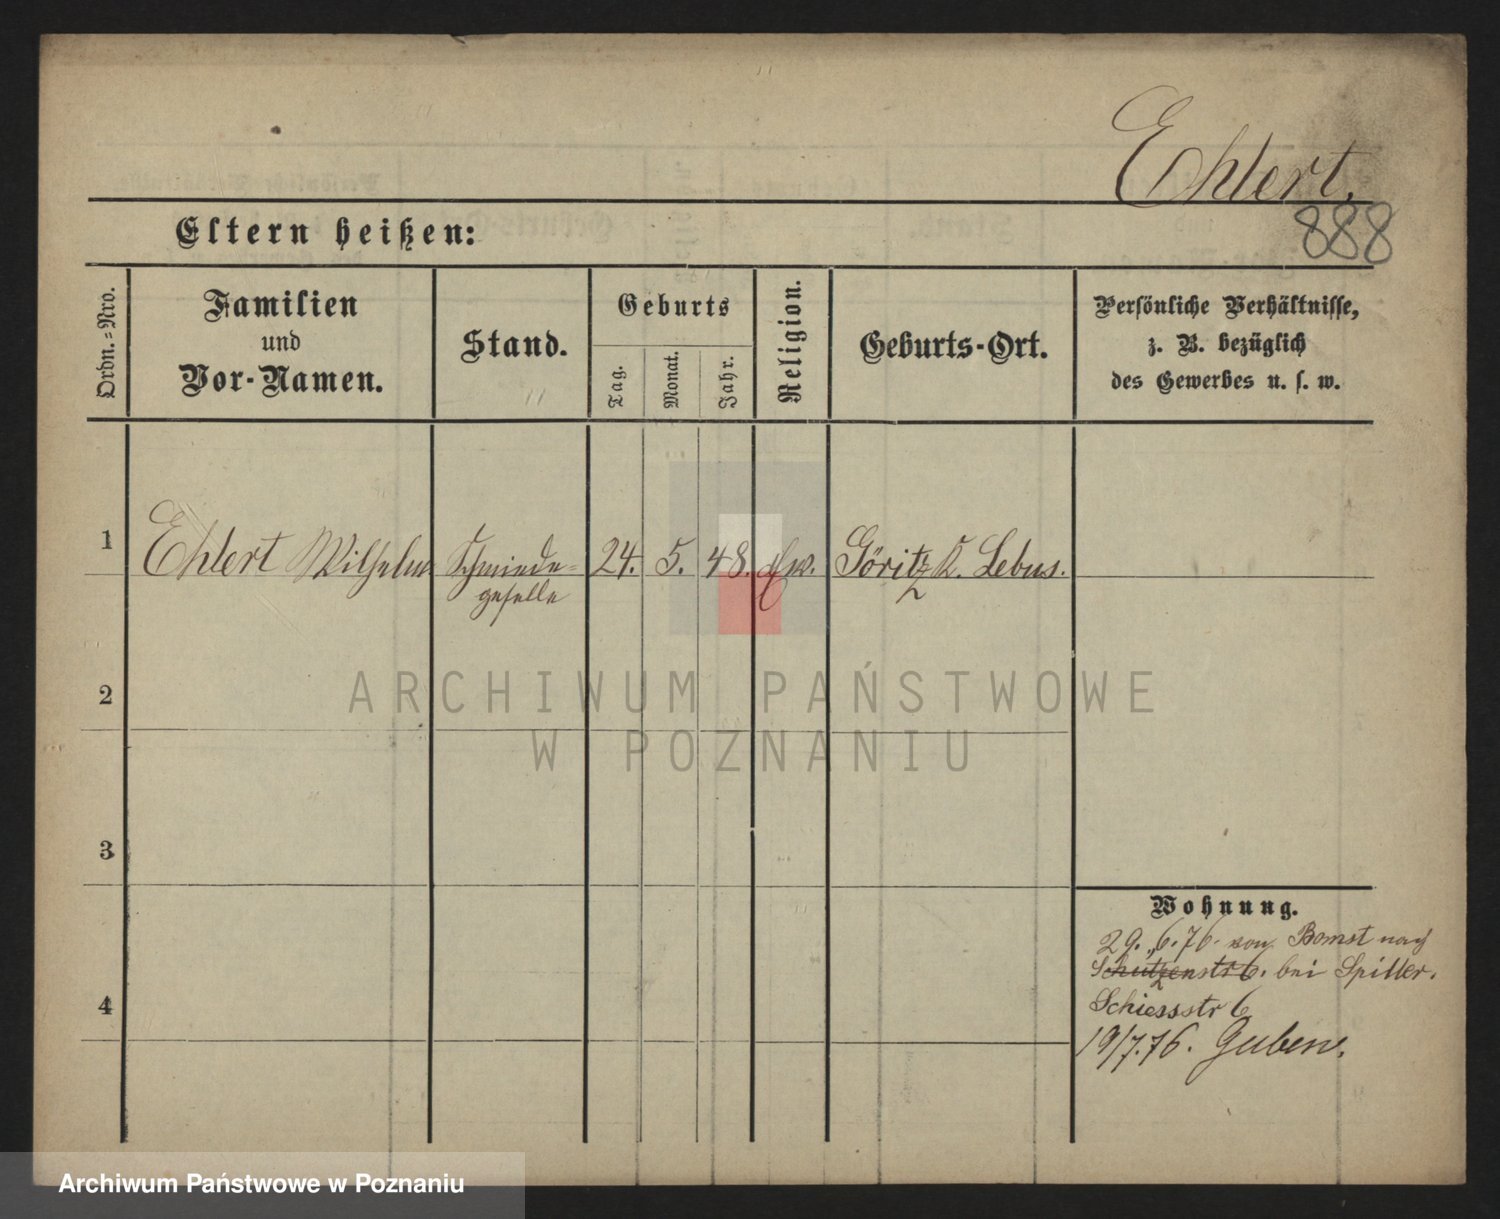 Ehlert.
888
Eltern heißen:
Ordn.-Nro.
Familien
und
Vor-Namen.
Stand.
Geburts
Tag.
Monat.
Jahr.
Religion.
Geburts-Ort.
Persönliche Verhältnisse,
z. B. bezüglich
des Gewerbes u. s. w.
1
Ehlert Wilhelm
Schmiede-
geselle
24.
5.
48.
Ew.
Göritz K. Lebus.
2
3
4
Wohnung.
29. 6. 76. von Bomst nach
Schutzenstr 6. bei Spiller.
Schiessstr 6
19/7. 76. Guben.
ARCHIWUM PAŃSTWOWE
W POZNANIU
Archiwum Państwowe w Poznaniu